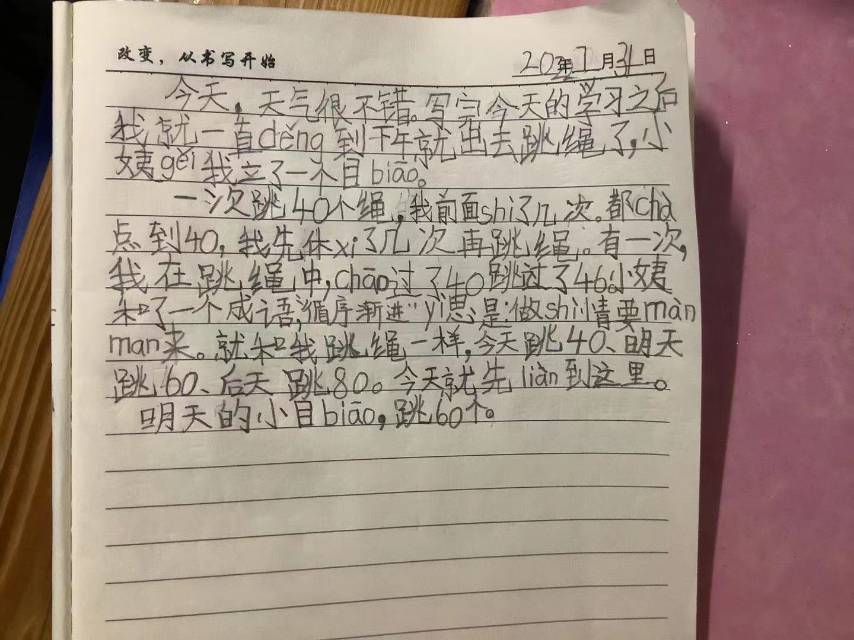 改变，从书写开始
20年7月31日
今天，天气很不错。写完今天的学习之后
我就一直děng到下午就出去跳绳了，小
姨gěi我立了一个目biāo。
一次跳40个绳，我前面shì了几次。都chà
点到40，我先休xi了几次再跳绳。有一次，
我在跳绳中，chāo过了40跳过了46小姨
和了一个成语，"循序渐进"yì思是：做shì情要màn
man来。就和我跳绳一样，今天跳40、明天
跳60、后天跳80。今天就先liàn到这里。
明天的小目biāo，跳60个。